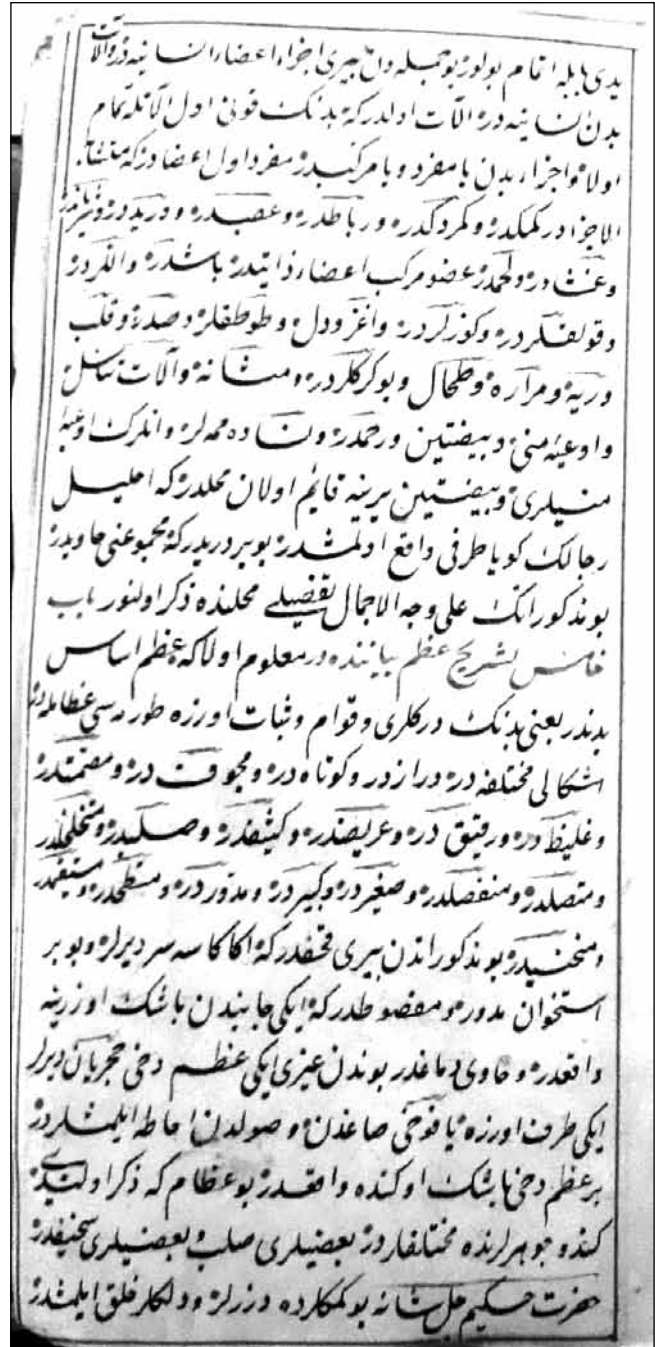 يدى ايله اتمام بولور بو جمله دن بيرى اجزاء اعضاء انسانيه در وآلات
بدن انسانيه در آلات اولدركه بدنك قوتى اول آلاتله تمام
اولا واجزاء بدن يا مفرد ويا مركبدر مفرد اول اعضادركه متشابه
الاجزادر كمكدر وكمردكدر ورباطدر وعصبدر ووريددر وشرياندر
وغشادر ولحمدر عضو مركب اعضاء ذاتيدر باشدر واللردر
وقولقلردر وكوزلردر واغز ودل وطوطقلر وصدر وقلب
وريه ومراره وطحال وبوكركلردر ومثانه وآلات تناسل
واوعيه منى وبيضتين ورحمدر ونساده ممه لر وانلرك اوعيه
منيلرى وبيضتين يرينه قايم اولان محلدركه احليل
رجالك كويا طرفى واقع اولمشدر بو بر دريدركه مجموعنى حاويدر
بو مذكوراتك على وجه الاجمال تفصيلى محلنده ذكر اولنور باب
خامس تشريح عظم بياننده در معلوم اولاكه عظم اساس
بدندر يعنى بدنك دركلرى وقوام وثبات اوزره طورمه سى عظامله در
اشكالى مختلفه در درازدر وكوتاه در ومجوف در ومصمتدر
وغليظ در ورقيق در وعريضدر وكثيفدر وصلبدر ومتخلخلدر
ومتصلدر ومنفصلدر وصغير در وكبير در ومدور در ومسطحدر ومستقيمدر
ومنحنيدر بو مذكوراتدن بيرى قحفدركه اكا كاسه سر ديرلر وبو بر
استخوان مدور ومضغوطدركه ايكى جانبدن باشك اوزرينه
واقعدر وحاوى دماغدر بوندن غيرى ايكى عظم دخى حجريان ديرلر
ايكى طرف اوزره يافوخى صاغدن وصولدن احاطه ايلمشلردر
بر عظم دخى باشك اوكنده واقعدر بو عظام كه ذكر اولندى
كندو جوهرلرنده مختلفلردر بعضيلرى صلب بعضيلرى سخيفدر
حضرت حكيم جل شانه بو كمكلرده درزلر ودلكلر خلق ايلمشدر